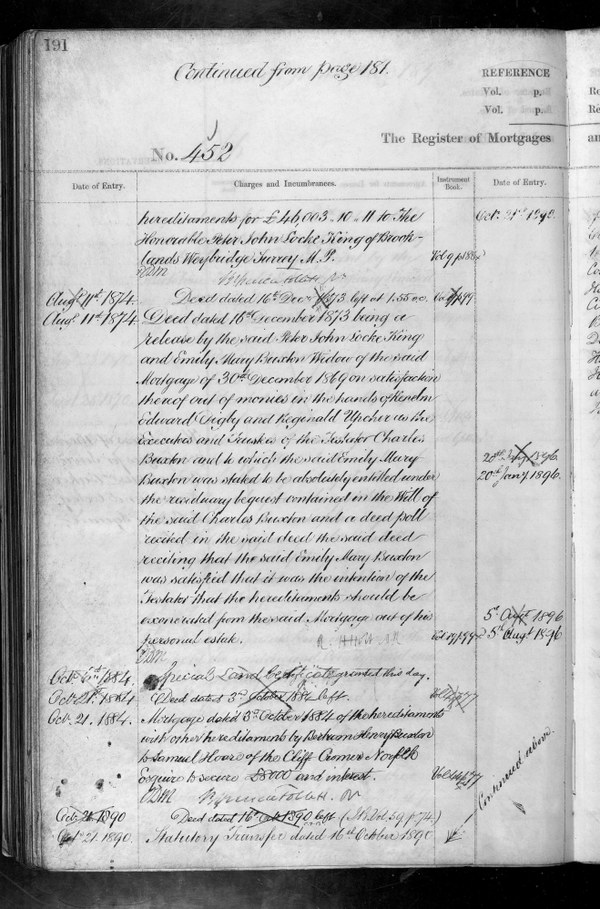 191
Continued from page 181.
REFERENCE
Vol. p.
Vol. p.
No. 452
The Register of Mortgages
Date of Entry.
Charges and Incumbrances.
Instrument Book.
Date of Entry.
hereditaments for £46,003..10..11 to The
Honorable Peter John Locke King of Brook-
lands Weybridge Surrey M.P.
Augt 11th 1874. Deed dated 16th Decr 1873 left at 1.55
Augt 11th 1874 Deed dated 16th December 1873 being a
release by the said Peter John Locke King
and Emily Mary Buxton Widow of the said
Mortgage of 30th December 1869 on satisfaction
thereof out of monies in the hands of Kenelm
Edward Digby and Reginald Upcher as the
Executors and Trustees of the Testator Charles
Buxton and to which the said Emily Mary
Buxton was stated to be absolutely entitled under
the residuary bequest contained in the Will of
the said Charles Buxton and a deed poll
recited in the said deed the said deed
reciting that the said Emily Mary Buxton
was satisfied that it was the intention of the
Testator that the hereditaments should be
exonerated from the said Mortgage out of his
personal estate.
20th Jany 1896.
5th Augt 1896
5th Augt 1896
Special Land Certificate granted this day.
Oct. 21st 1884 Deed dated 3rd October 1884 left.
Oct. 21. 1884. Mortgage dated 3rd October 1884 of the hereditaments
with other hereditaments by Bertram Henry Buxton
to Samuel Hoare of the Cliff Cromer Norfolk
Esquire to secure £8000 and interest.
Continued above.
Oct. 21. 1890 Deed dated 16th Oct 1890 left
Oct. 21. 1890. Statutory Transfer dated 16th October 1890